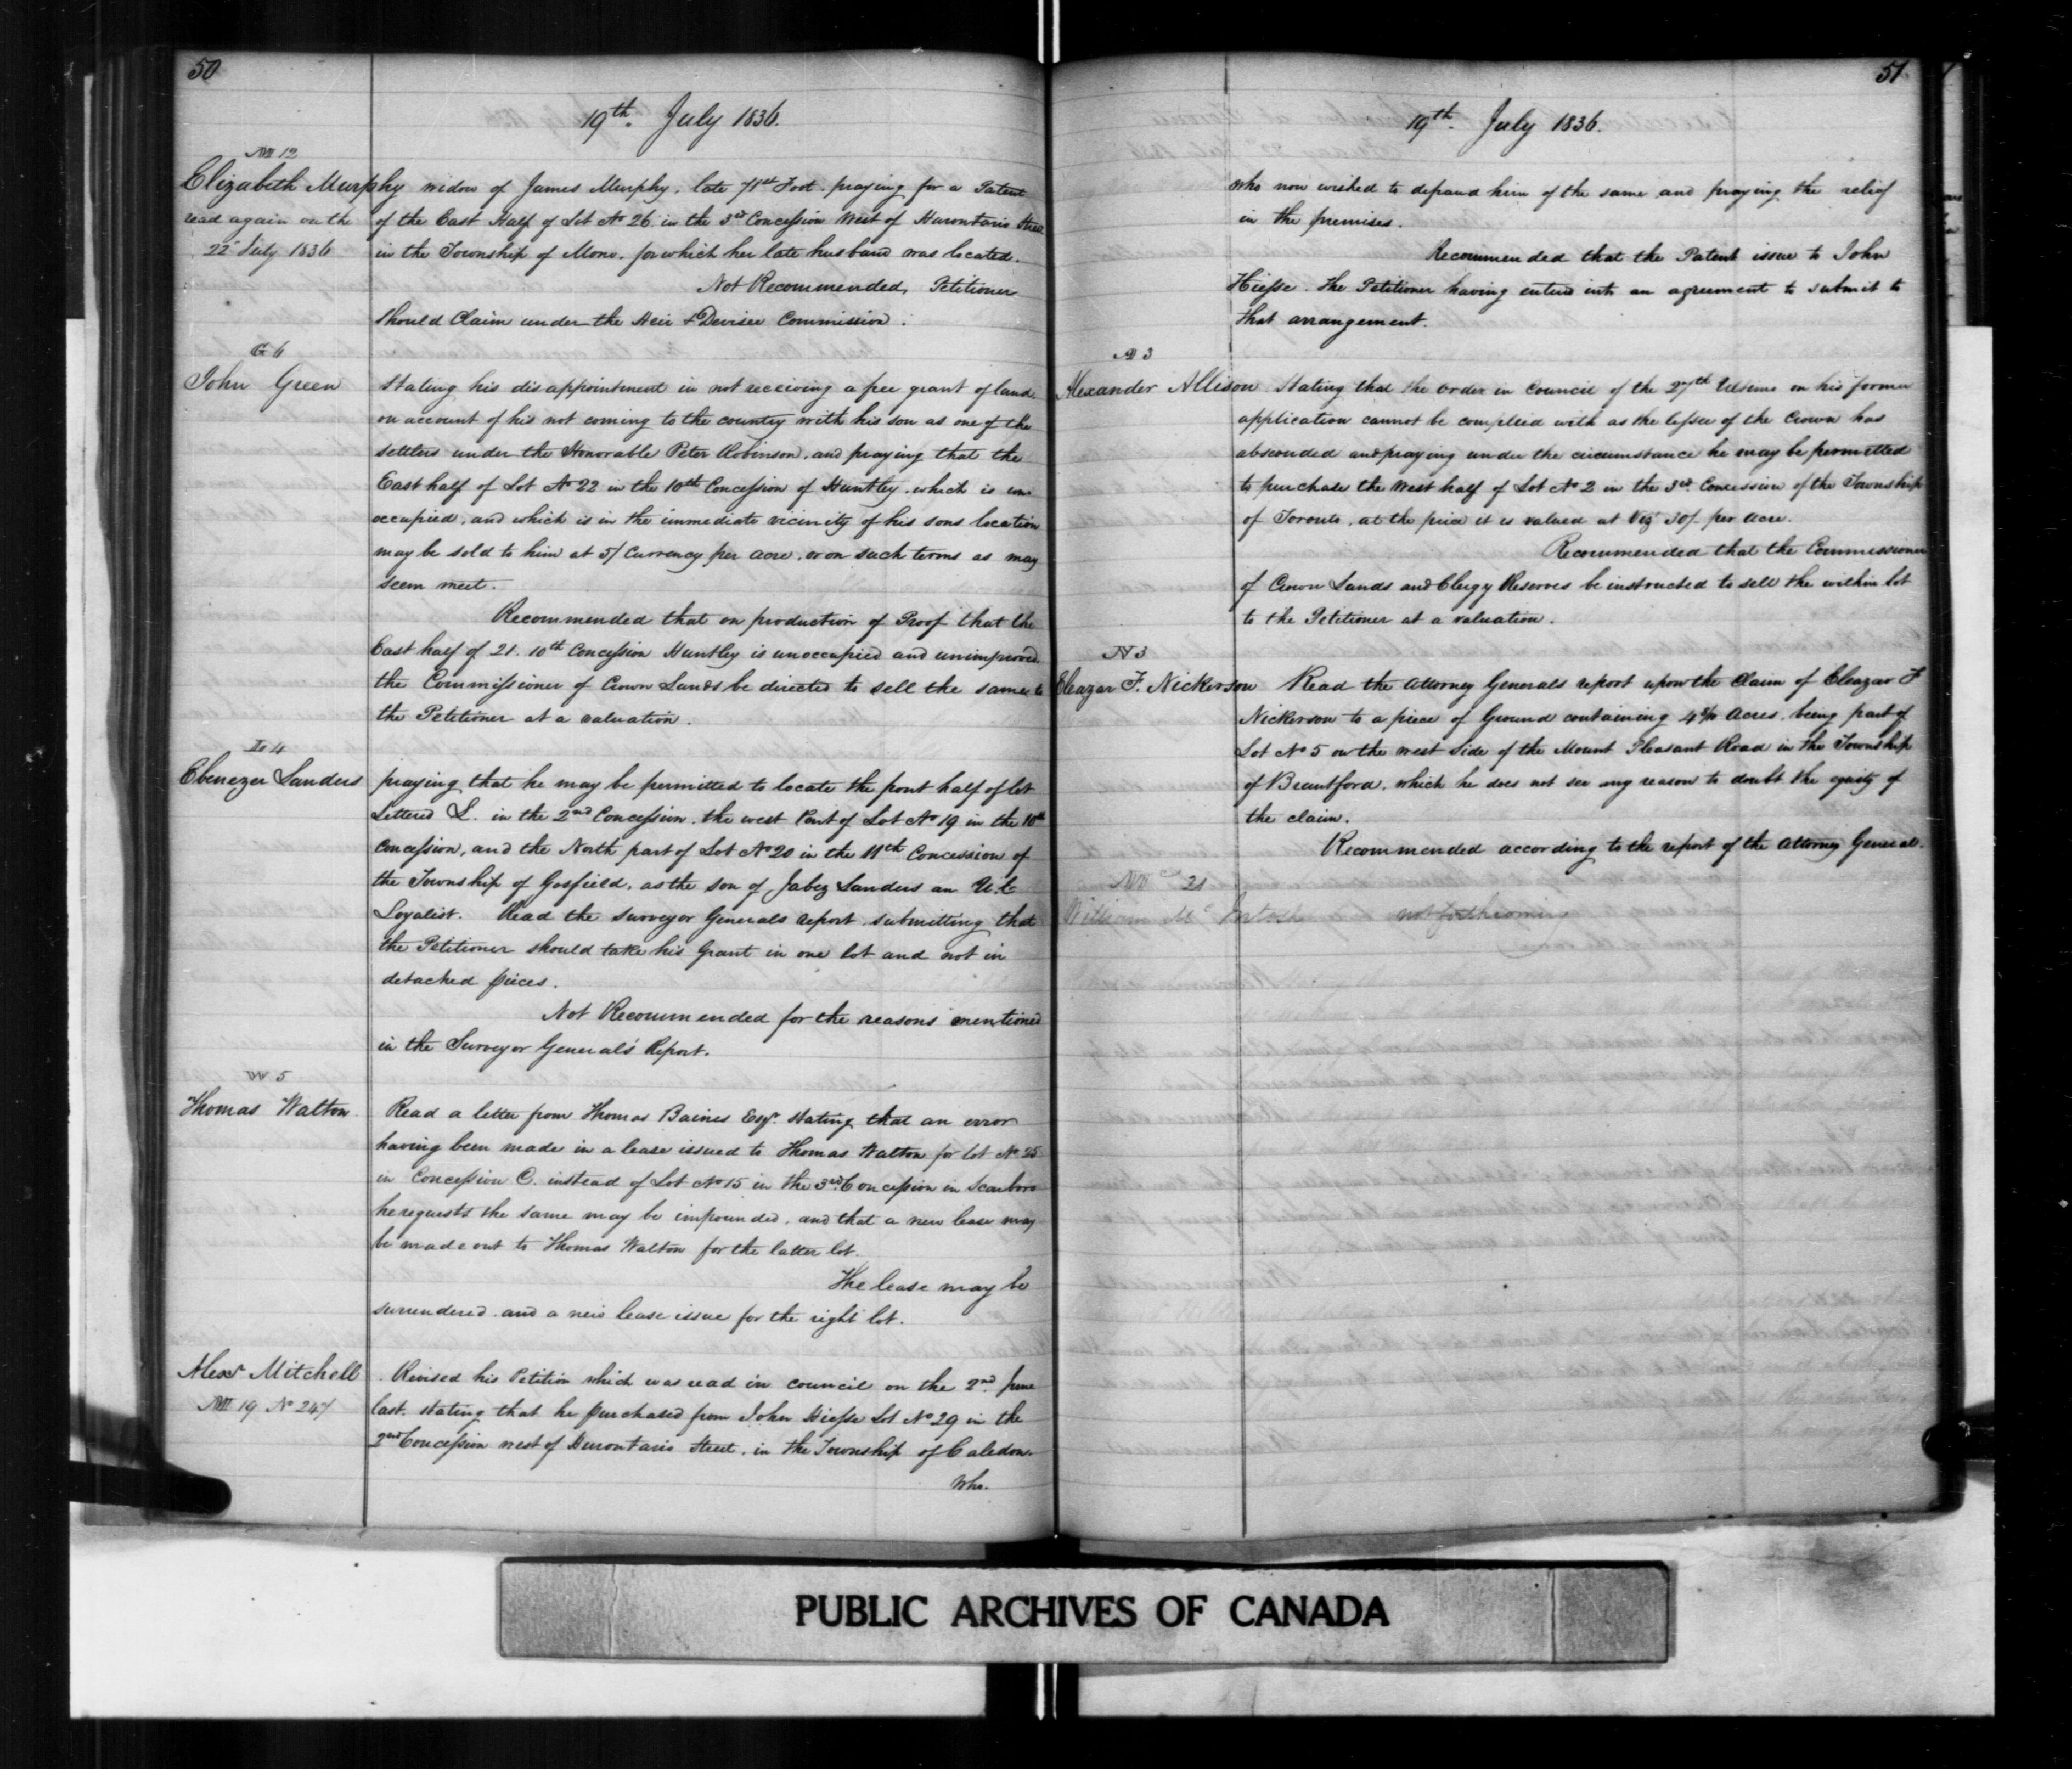 50
19th. July 1836.
M 12
Elizabeth Murphy widow of James Murphy, late 71st Foot. praying for a Patent
read again on the
22d July 1836
of the East Half of Lot No 26 in the 3rd Concession West of Hurontario Street
in the Township of Mono. for which her late husband was located.
Not Recommended, Petitioner
Should Claim under the Heir & Devisee Commission.
G 6
John Green
Stating his disappointment in not receiving a free grant of land,
on account of his not coming to the country with his son as one of the
settlers under the Honorable Peter Robinson, and praying that the
East half of Lot No 22 in the 10th Concession of Huntley, which is un-
occupied, and which is in the immediate vicinity of his sons location
may be sold to him at 5/ Currency per acre, or on such terms as may
seem meet.
Recommended that on production of Proof that the
East half of 21. 10th Concession Huntley is unoccupied and unimproved
the Commissioner of Crown Lands be directed to sell the same to
the Petitioner at a valuation.
4
Ebenezer Landers
praying that he may be permitted to locate the front half of lot
Lettered L. in the 2nd Concession, the west Part of Lot No 19 in the 10th
Concession, and the North part of Lot No 20 in the 11th Concession of
the Township of Gosfield, as the son of Jabez Landers an U.E
Loyalist. Read the Surveyor Generals report, submitting that
the Petitioner should take his Grant in one lot and not in
detached pieces.
Not Recommended for the reasons mentioned
in the Surveyor General's Report.
W 5
Thomas Walton
Read a letter from Thomas Baines Esqr. stating that an error
having been made in a lease issued to Thomas Walton for lot No 25
in Concession C. instead of Lot No 15 in the 3rd Concession in Scarboro
he requests the same may be impounded, and that a new lease may
be made out to Thomas Walton for the latter lot.
The lease may be
surrendered and a new lease issue for the right lot.
Alexr Mitchell
M 19 No 247
Revised his Petition which was read in council on the 2nd. June
last. stating that he purchased from John Hiesse Lot No 29 in the
2nd Concession west of Hurontario Street, in the Township of Caledon.
Who.
51
19th. July 1836.
who now wished to defraud him of the same and praying the relief
in the premises.
Recommended that the Patent issue to John
Hiesse. The Petitioner having entered into an agreement to submit to
that arrangement.
A 3
Alexander Allison. Stating that the Order in Council of the 27th Ultimo on his former
application cannot be complied with as the lessee of the Crown has
absconded and praying under the circumstance he may be permitted
to purchase the West half of Lot No 2 in the 3rd. Concession of the Township
of Toronto, at the price it is valued at Vizt 30/- per acre.
Recommended that the Commissioner
of Crown Lands and Clergy Reserves be instructed to sell the within lot
to the Petitioner at a valuation.
N 3
Eleazar F. Nickerson Read the Attorney Generals report upon the Claim of Eleazar F
Nickerson to a piece of Ground containing Acres, being part of
Lot No 5 on the West Side of the Mount Pleasant Road in the Township
of Brantford, which he does not see any reason to doubt the equity of
the claim.
Recommended according to the report of the Attorney General.
Mc 21
William Mc Intosh not forthcoming
PUBLIC ARCHIVES OF CANADA